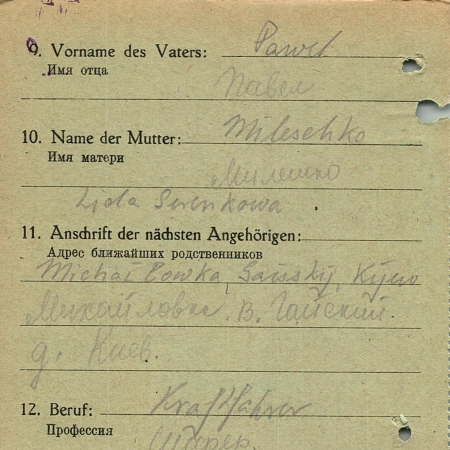 9. Vorname des Vaters: Pawel
Имя отца
Павел
10. Name der Mutter: Mileschko
Имя матери
Милешко
Lida Serenkowa
11. Anschrift der nächsten Angehörigen:
Адрес ближайших родственников
Michailowka, Kijew
Михайловка. В.
д. Киев.
12. Beruf: Kraftfahrer
Профессия